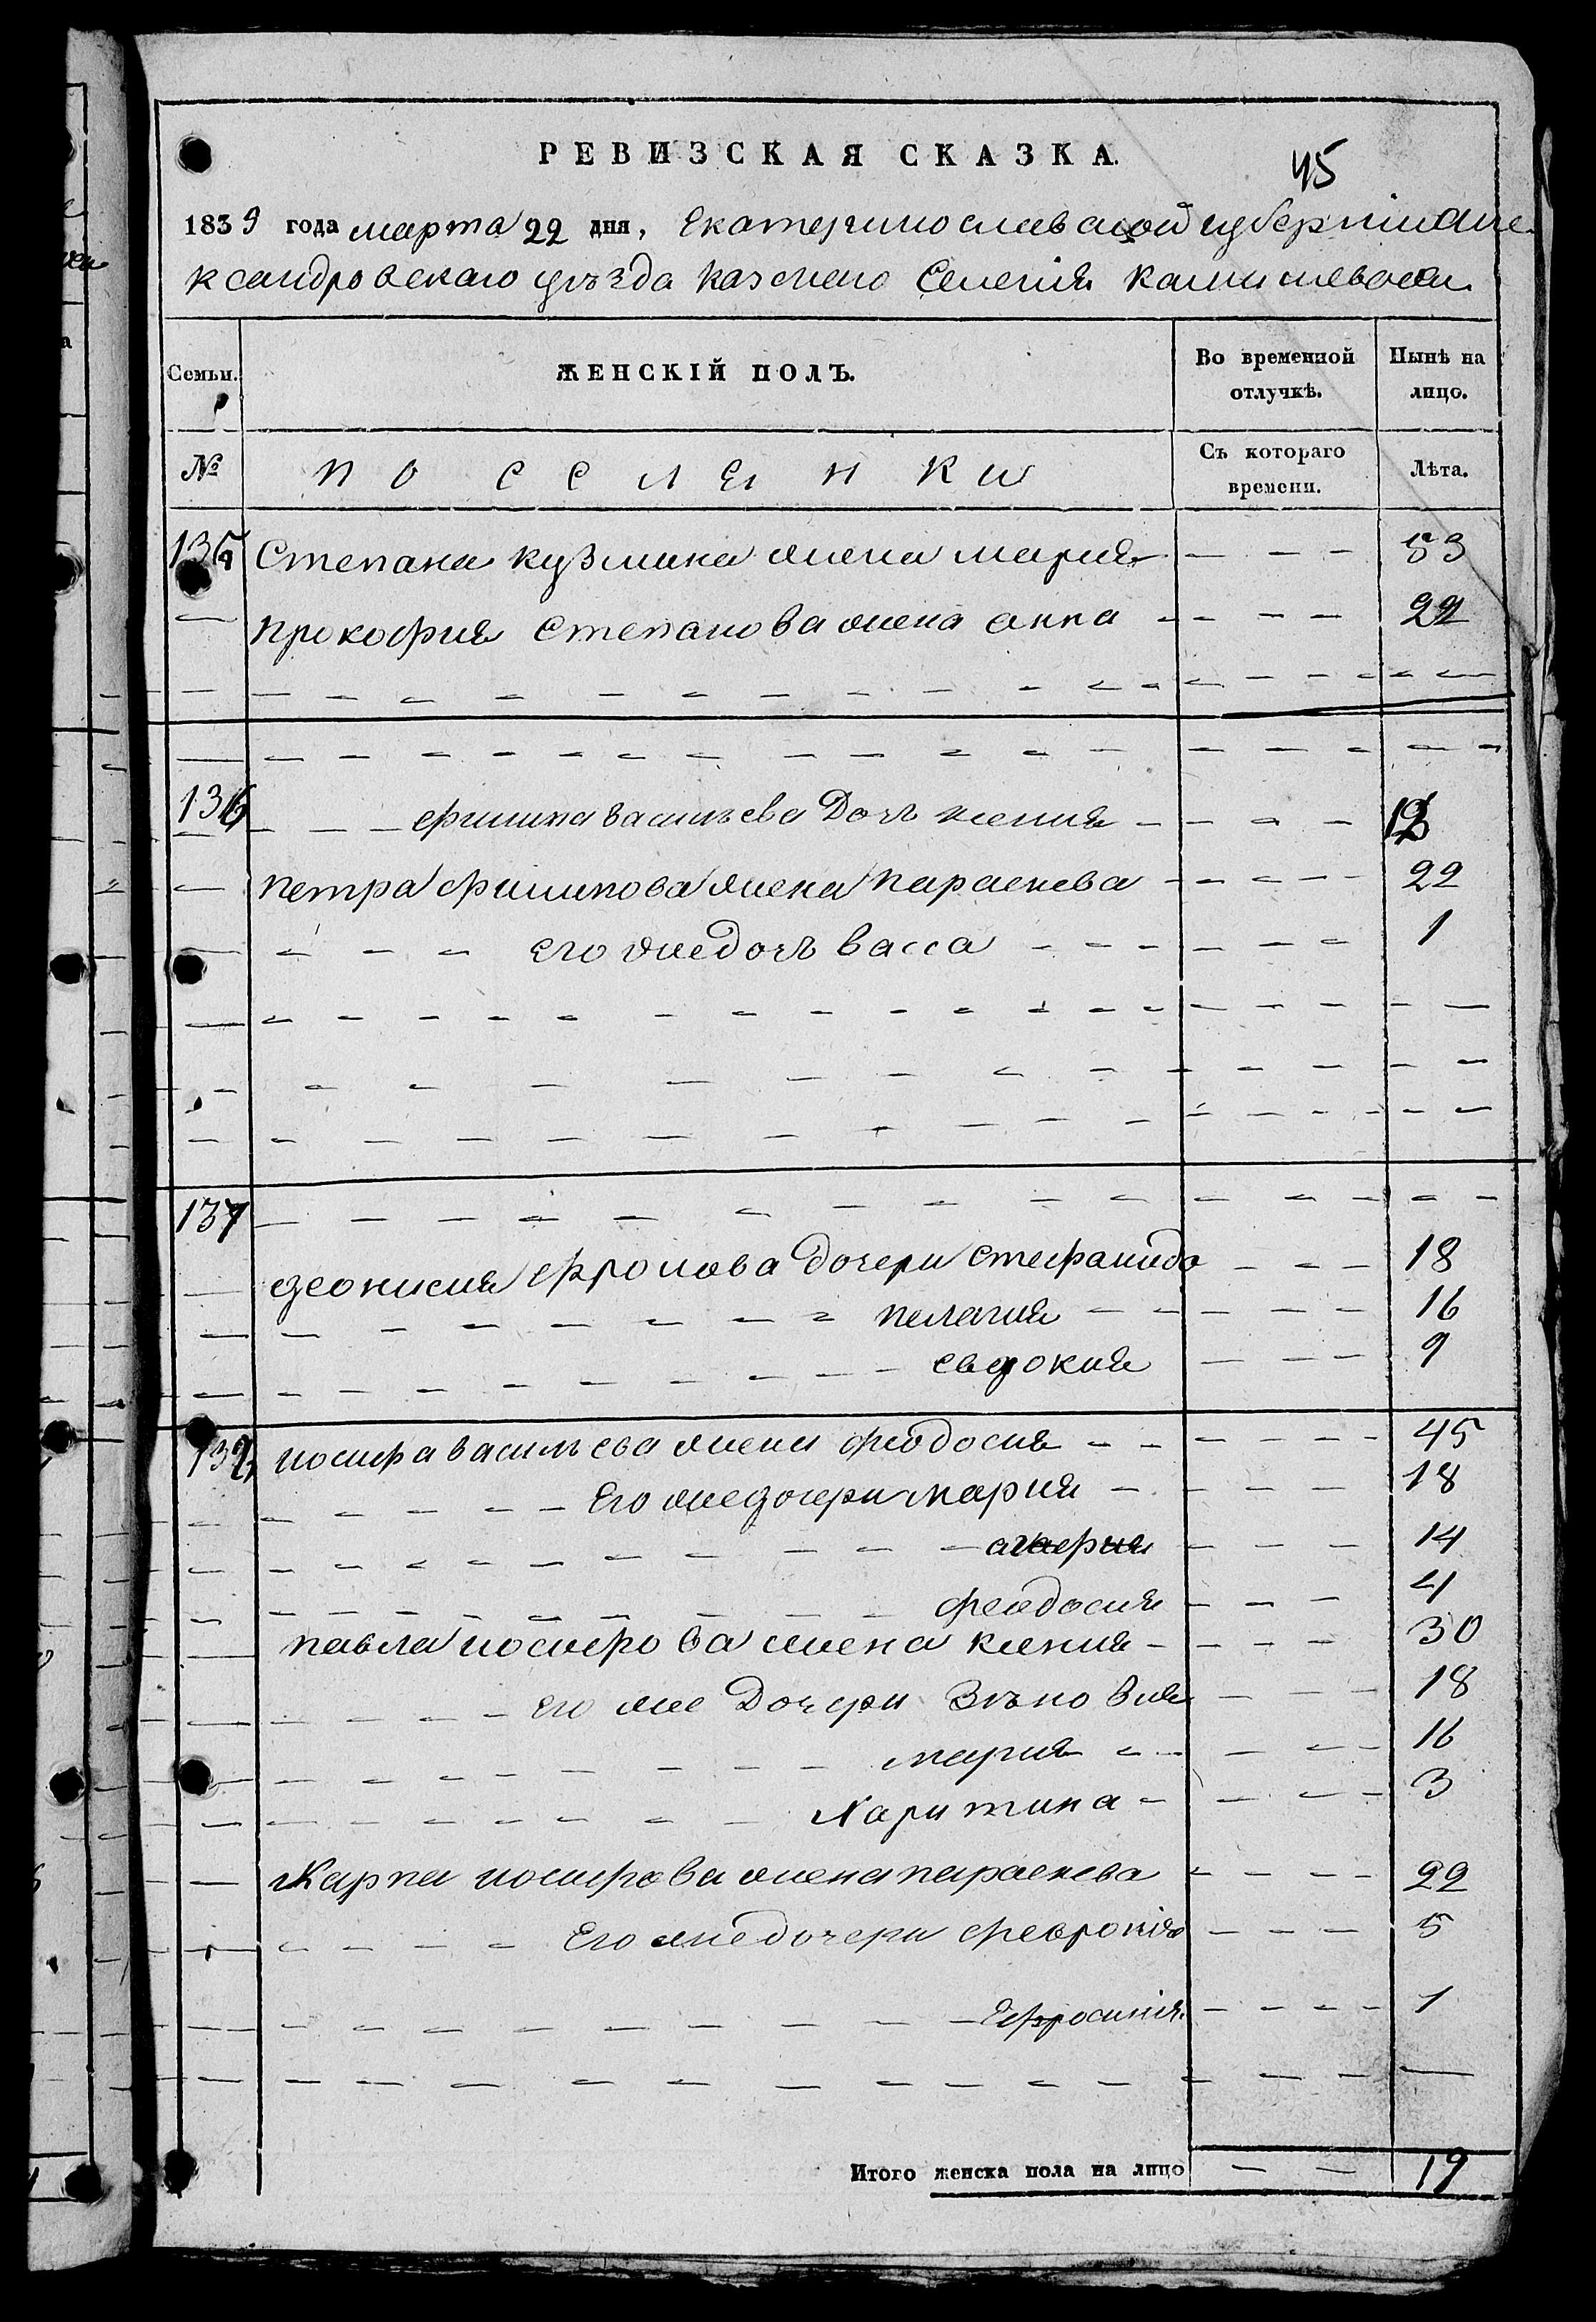 РЕВИЗСКАЯ СКАЗКА.
45
1839 года марта 22 дня, Екатеринославской губернии але
ксандровскаго уѣзда казенаго Селения
Семьи. ЖЕНСКІЙ ПОЛЪ. Во временной отлучкѣ. Нынѣ на лицо.
№ поселенки Съ котораго времени. Лѣта.
135 Степана кузмина жена мария 53
прокофия Степанова жена анна 22
136 филипа васильева Дочь ксения
петра филипова жена параскева 22
его жедочь васса 1
137
деонисия фролова дочери стефанида 18
пелагия 16
евдокия 9
иосифа васильева жена феодосия 45
Его жедочери мария 18
14
феодосия 4
павла иосифова жена ксения 30
его же Дочери Зѣновия 18
мария 16
Харитина 3
Карпа иосифова жена параскева 22
Его жедочери феврония 5
Ефросиния 1
Итого женска пола на лицо 19